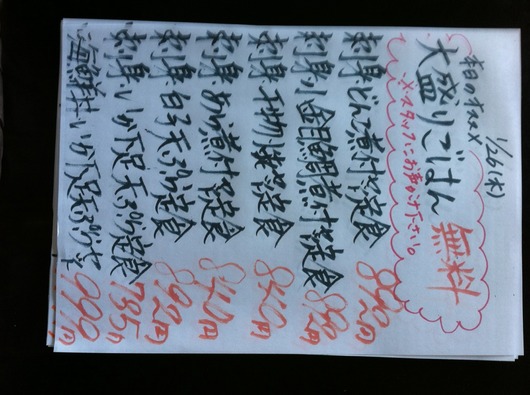 本日のオススメ 1/26(木)
大盛りごはん 無料
※スタッフにお声がけ下さい。
刺身 どんこ煮付定食 890円
刺身 小金目鯛煮付定食 890円
刺身 干物 焼定食 840円
刺身 あら煮付定食 840円
刺身 白子天ぷら定食 890円
刺身 いか下足天ぷら定食 785円
海鮮丼 いか下足天ぷら 990円